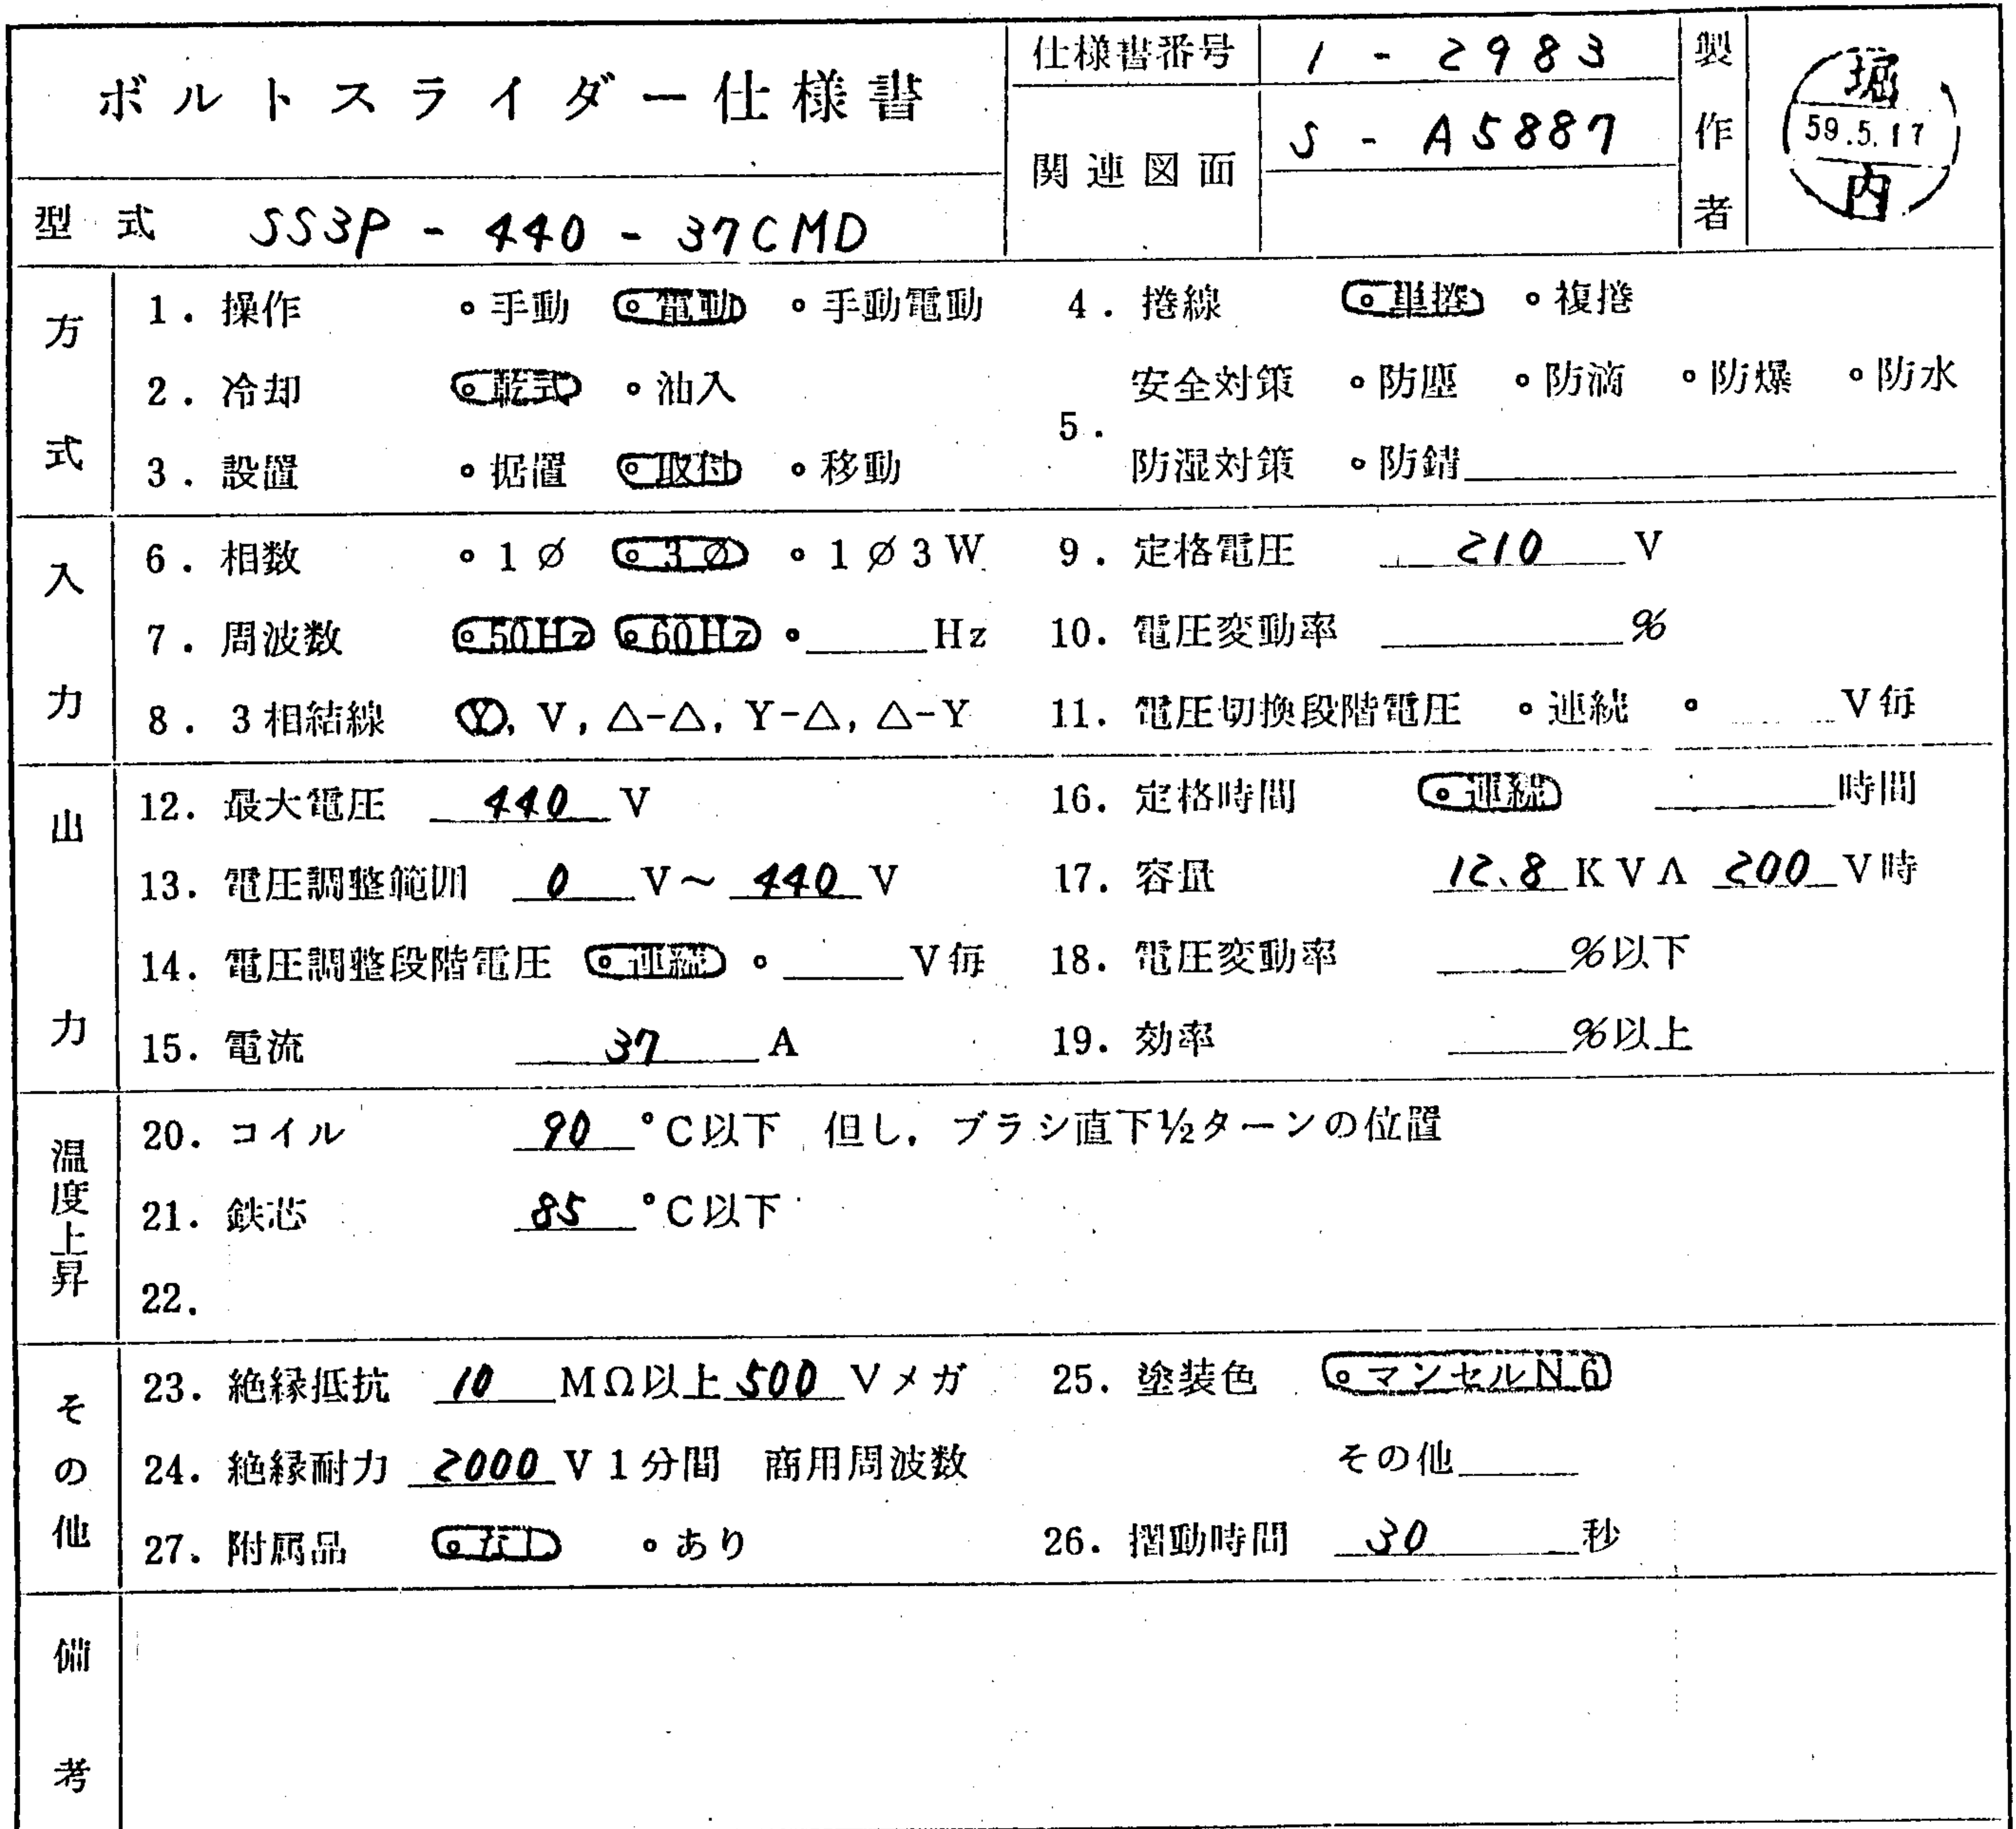 ボルトスライダー仕様書
仕様書番号 1 - 2983
関連図面 S - A5887
製作者
堀
59.5.17
内
型式 SS3P - 440 - 37CMD
方式
1. 操作 ∘手動 ∘電動 ∘手動電動
2. 冷却 ∘乾式 ∘油入
3. 設置 ∘据置 ∘取付 ∘移動
4. 捲線 ∘単捲 ∘複捲
5. 安全対策 ∘防塵 ∘防滴 ∘防爆 ∘防水
防湿対策 ∘防錆
入力
6. 相数 ∘1∅ ∘3∅ ∘1∅3W
7. 周波数 ∘50Hz ∘60Hz ∘____Hz
8. 3相結線 Y, V, △-△, Y-△, △-Y
9. 定格電圧 210 V
10. 電圧変動率 ____%
11. 電圧切換段階電圧 ∘連続 ∘____V毎
出力
12. 最大電圧 440 V
13. 電圧調整範囲 0 V～440 V
14. 電圧調整段階電圧 ∘連続 ∘____V毎
15. 電流 37 A
16. 定格時間 ∘連続 ____時間
17. 容量 12.8 KVA 200 V時
18. 電圧変動率 ____%以下
19. 効率 ____%以上
温度上昇
20. コイル 90 °C以下 但し, ブラシ直下½ターンの位置
21. 鉄芯 85 °C以下
22.
その他
23. 絶縁抵抗 10 MΩ以上 500 Vメガ
24. 絶縁耐力 2000 V1分間 商用周波数
27. 附属品 ∘なし ∘あり
25. 塗装色 ∘マンセルN6
その他____
26. 摺動時間 30 秒
備考